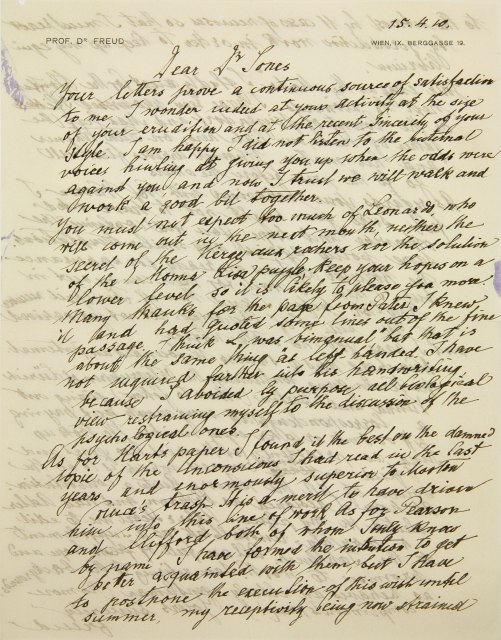 15.4.10.
PROF. Dr FREUD
WIEN, IX. BERGGASSE 19.
Dear Dr Jones
Your letters prove a continuous source of satisfaction
to me. I wonder indeed at your activity at the size
of your erudition and at the recent sincerity of your
style. I am happy I did not listen to the internal
voices hinting at giving you up when the odds were
against you and now I trust we will walk and
work a good bit together.
You must not expect too much of Leonardo, who
will come out in the next month, neither the
secret of the Vierge aux rochers nor the solution
of the Monna Lisa puzzle; keep your hopes on a
lower level, so it is likely to please you more.
Many thanks for the page from Pater, I knew
it and had quoted some lines out of the fine
passage. I think L. was bimanual but that is
about the same thing as left handed. I have
not inquired further into his handwriting
because I avoided by purpose all biological
view restraining myself to the discussion of the
psychological ones.
As for Hart's paper I found it the best on the damned
topic of the Unconscious I had read in the last
years and enormously superior to Morton
Prince's trash. It is a merit to have driven
him into this line of work. As for Pearson
and Clifford both of whom I only know
by name I have formed the intention to get
better acquainted with them, but I have
to postpone the execution of this wish until
summer, my receptivity being now strained